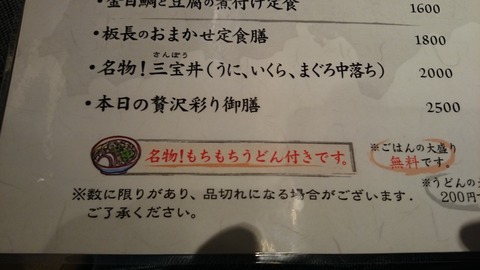 ・金目鯛と豆腐の煮付け定食 1600
・板長のおまかせ定食膳 1800
さんぽう
・名物！三宝丼（うに、いくら、まぐろ中落ち） 2000
・本日の贅沢彩り御膳 2500
名物！もちもちうどん付きです。
※ごはんの大盛り
無料です。
※うどんの
200円
※数に限りがあり、品切れになる場合がございます.
ご了承ください。